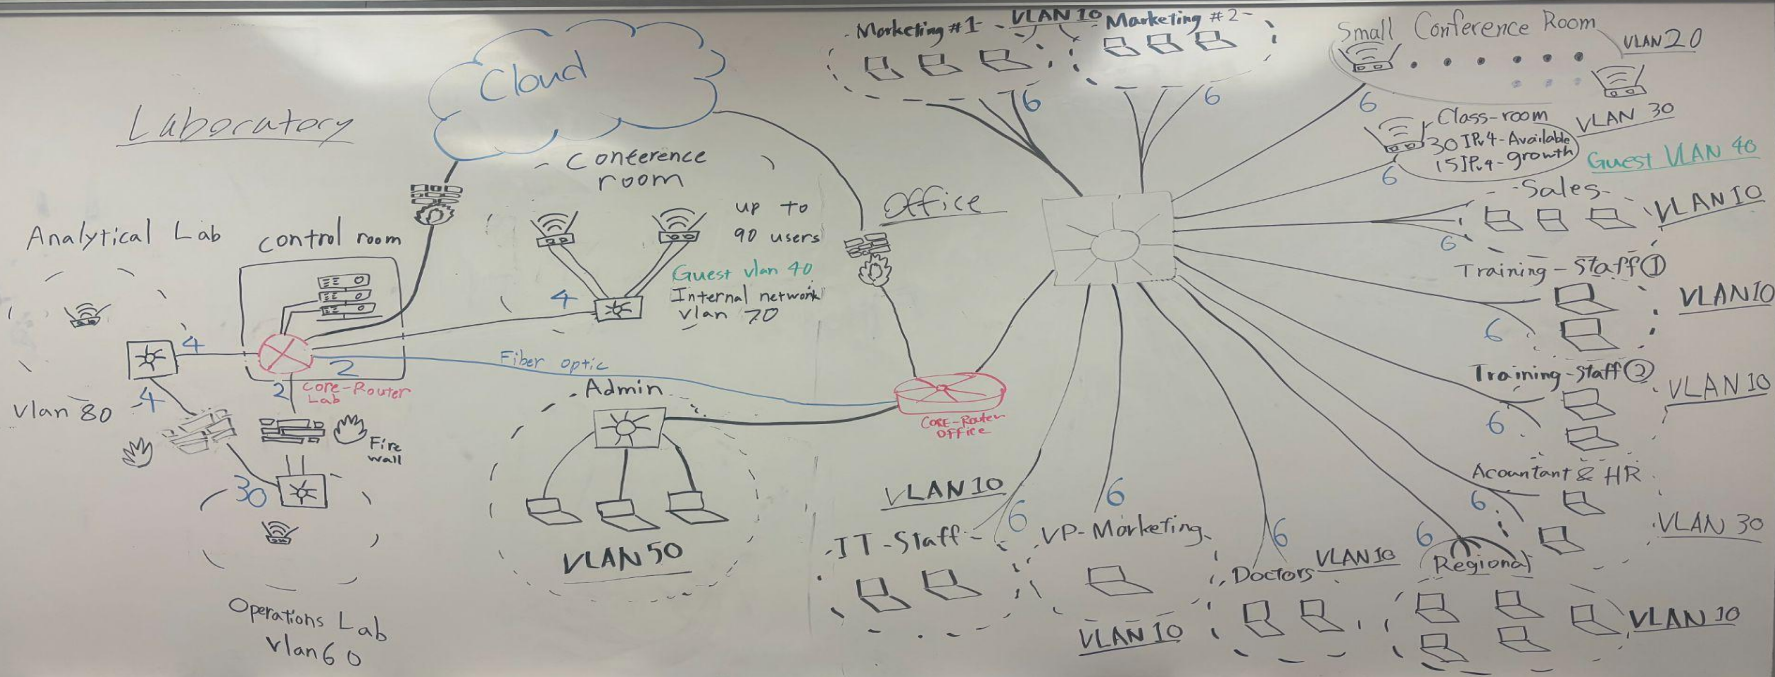 Laboratory
Cloud
Conterence
room
up to
90 users
Guest vlan 40
Internal network
vlan 70
4
Analytical Lab
control room
4
4
vlan 80
2
2
Core-Router
Lab
Fire
wall
30
Operations Lab
vlan 60
Fiber optic
Admin
VLAN 50
Office
Core-Router
OFFice
Marketing #1
VLAN 10
Marketing #2
6
6
Small Conference Room
VLAN 20
6
Class-room
30 IPv4-Available
15 IPv4-growth
VLAN 30
Guest VLAN 40
6
Sales
VLAN 10
6
Training-Staff ①
VLAN 10
6
Training-Staff ②
VLAN 10
6
Acountant & HR
6
VLAN 30
VLAN 10
IT-Staff
6
VP-Marketing
6
VLAN 10
Doctors
VLAN 10
6
Regional
6
VLAN 10